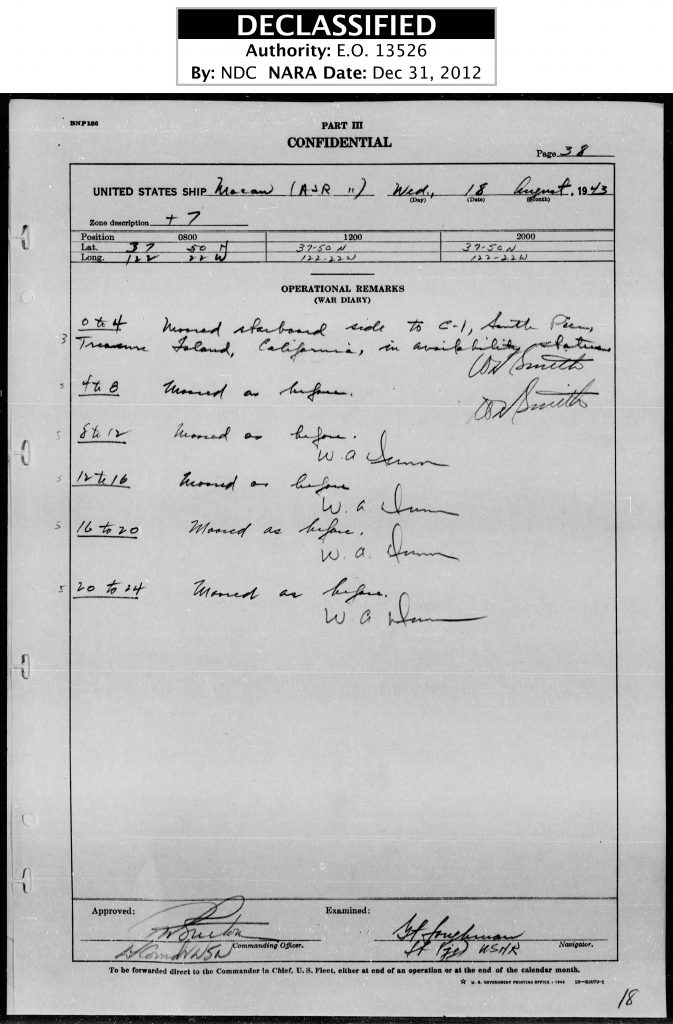 DECLASSIFIED
Authority: E.O. 13526
By: NDC NARA Date: Dec 31, 2012
BNP 186
PART III
CONFIDENTIAL
Page 38
UNITED STATES SHIP Macaw (ASR 11) Wed., 18 August, 1943
(Day) (Date) (Month)
Zone description + 7
Position 0800 1200 2000
Lat. 37 50 N 37-50 N 37-50 N
Long. 122 22 W 122-22W 122-22W
OPERATIONAL REMARKS
(WAR DIARY)
0 to 4 Moored starboard side to C-1, South Pier,
3 Treasure Island, California, in availability status.
WN Smith
5 4 to 8 Moored as before.
WN Smith
5 8 to 12 Moored as before.
W. A. Dunn
5 12 to 16 Moored as before
W. A. Dunn
5 16 to 20 Moored as before.
W. A. Dunn
5 20 to 24 Moored as before.
W. A. Dunn
Approved: Examined:
Commanding Officer.
Lt (jg) USNR Navigator.
To be forwarded direct to the Commander in Chief, U. S. Fleet, either at end of an operation or at the end of the calendar month.
☆ U. S. GOVERNMENT PRINTING OFFICE : 1943
18